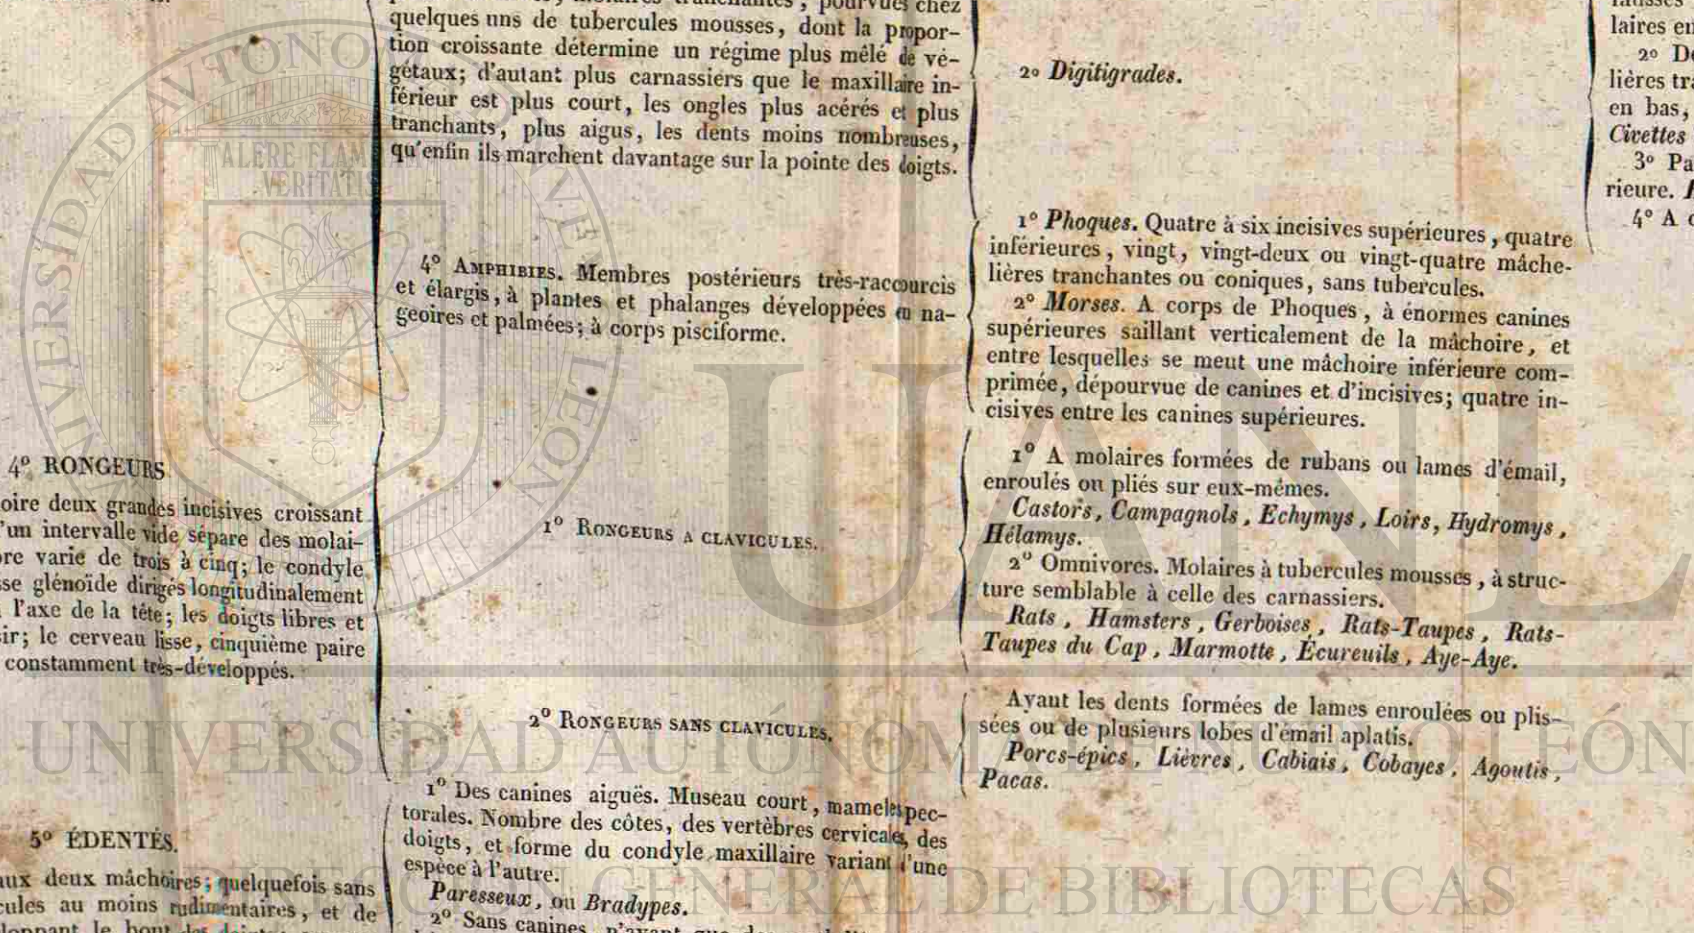 4º RONGEURS
oire deux grandes incisives croissant
'un intervalle vide sépare des molai-
bre varie de trois à cinq; le condyle
sse glénoïde dirigés longitudinalement
l'axe de la tête; les doigts libres et
ir; le cerveau lisse, cinquième paire
constamment très-développés.
5º ÉDENTÉS.
aux deux mâchoires; quelquefois sans
cules au moins rudimentaires, et de
quelques uns de tubercules mousses, dont la propor-
tion croissante détermine un régime plus mêlé de vé-
gétaux; d'autant plus carnassiers que le maxillaire in-
férieur est plus court, les ongles plus acérés et plus
tranchants, plus aigus, les dents moins nombreuses,
qu'enfin ils marchent davantage sur la pointe des doigts.
4º AMPHIBIES. Membres postérieurs très-raccourcis
et élargis, à plantes et phalanges développées en na-
geoires et palmées; à corps pisciforme.
1º RONGEURS A CLAVICULES.
2º RONGEURS SANS CLAVICULES.
1º Des canines aiguës. Museau court, mameles pec-
torales. Nombre des côtes, des vertèbres cervicales, des
doigts, et forme du condyle maxillaire variant d'une
espèce à l'autre.
Paresseux, ou Bradypes.
2º Sans canines
2º Digitigrades.
1º Phoques. Quatre à six incisives supérieures, quatre
inférieures, vingt, vingt-deux ou vingt-quatre mâche-
lières tranchantes ou coniques, sans tubercules.
2º Morses. A corps de Phoques, à énormes canines
supérieures saillant verticalement de la mâchoire, et
entre lesquelles se meut une mâchoire inférieure com-
primée, dépourvue de canines et d'incisives; quatre in-
cisives entre les canines supérieures.
1º A molaires formées de rubans ou lames d'émail,
enroulés ou pliés sur eux-mêmes.
Castors, Campagnols, Echymys, Loirs, Hydromys,
Hélamys.
2º Omnivores. Molaires à tubercules mousses, à struc-
ture semblable à celle des carnassiers.
Rats, Hamsters, Gerboises, Rats-Taupes, Rats-
Taupes du Cap, Marmotte, Écureuils, Aye-Aye.
Ayant les dents formées de lames enroulées ou plis-
sées ou de plusieurs lobes d'émail aplatis.
Porcs-épics, Lièvres, Cabiais, Cobayes, Agoutis,
Pacas.
laires en
2º De
lières tra
en bas,
Civettes
3º Pa
rieure.
4º A
UNIVERSIDAD AUTÓNOMA DE NUEVO LEÓN
ALERE FLAMMAM
VERITATIS
UANL
UNIVERSIDAD AUTÓNOMA DE NUEVO LEÓN
DIRECCIÓN GENERAL DE BIBLIOTECAS